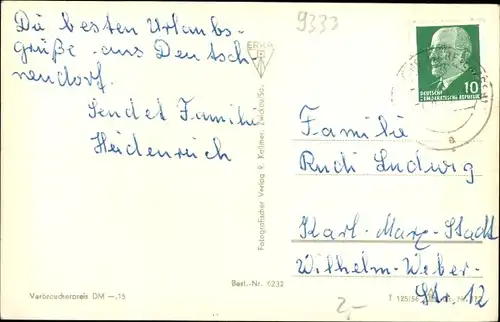 Die besten Urlaubs-
grüße aus Deutsch
neudorf.
Sendet Familie
Heidenreich
9333
ERKA
10
DEUTSCHE
DEMOKRATISCHE REPUBLIK
a
Familie
Rudi Ludwig
Karl-Marx-Stadt
Wilhelm-Weber-
Str. 12
Fotografischer Verlag R. Kallmer, Zwickau/Sa.
Best.-Nr. 6232
Verbraucherpreis DM -.15
2,-
T 125/56